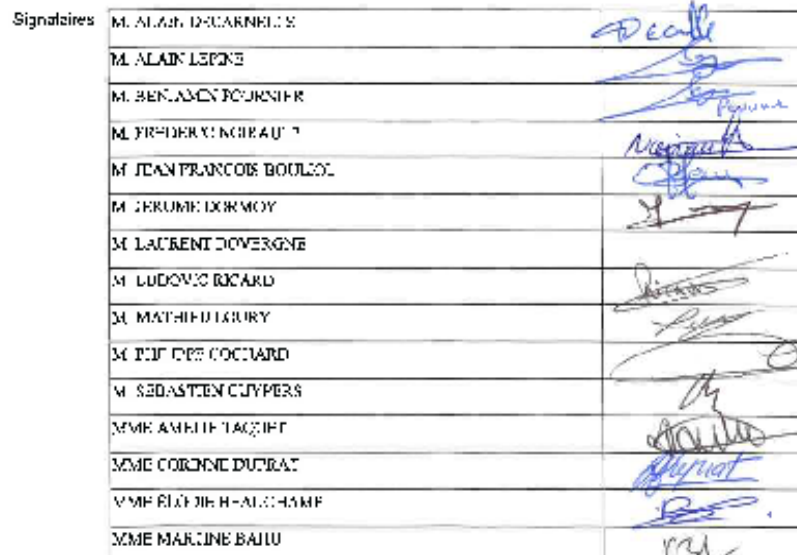 Signataires
M. ALAIN DECARNELLS
M. ALAIN LEPINE
M. BENJAMIN FOURNIER
M. FREDERIC NOIRAULT
M. JEAN FRANCOIS BOULJOL
M. JEROME DORMOY
M. LAURENT DOVERGNE
M. LUDOVIC RICARD
M. MATHIEU LOURY
M. PHILIPPE COCHARD
M. SEBASTIEN CUYPERS
MME AMELIE TAQUET
MME CORINNE DUPRAT
MME ÉLODIE BEAUCHAMP
MME MARTINE BAHU